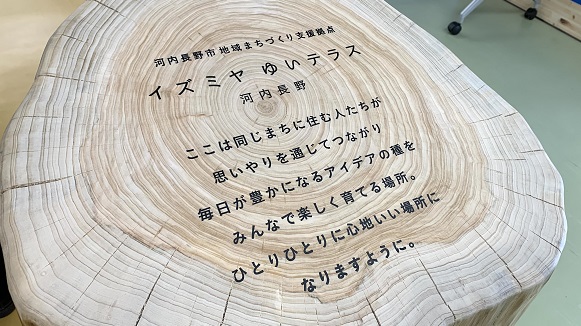 河内長野市 地域まちづくり支援拠点
イズミヤ ゆいテラス
河内長野
ここは同じまちに住む人たちが
思いやりを通じてつながり
毎日が豊かになるアイデアの種を
みんなで楽しく育てる場所。
ひとりひとりに心地いい場所に
なりますように。